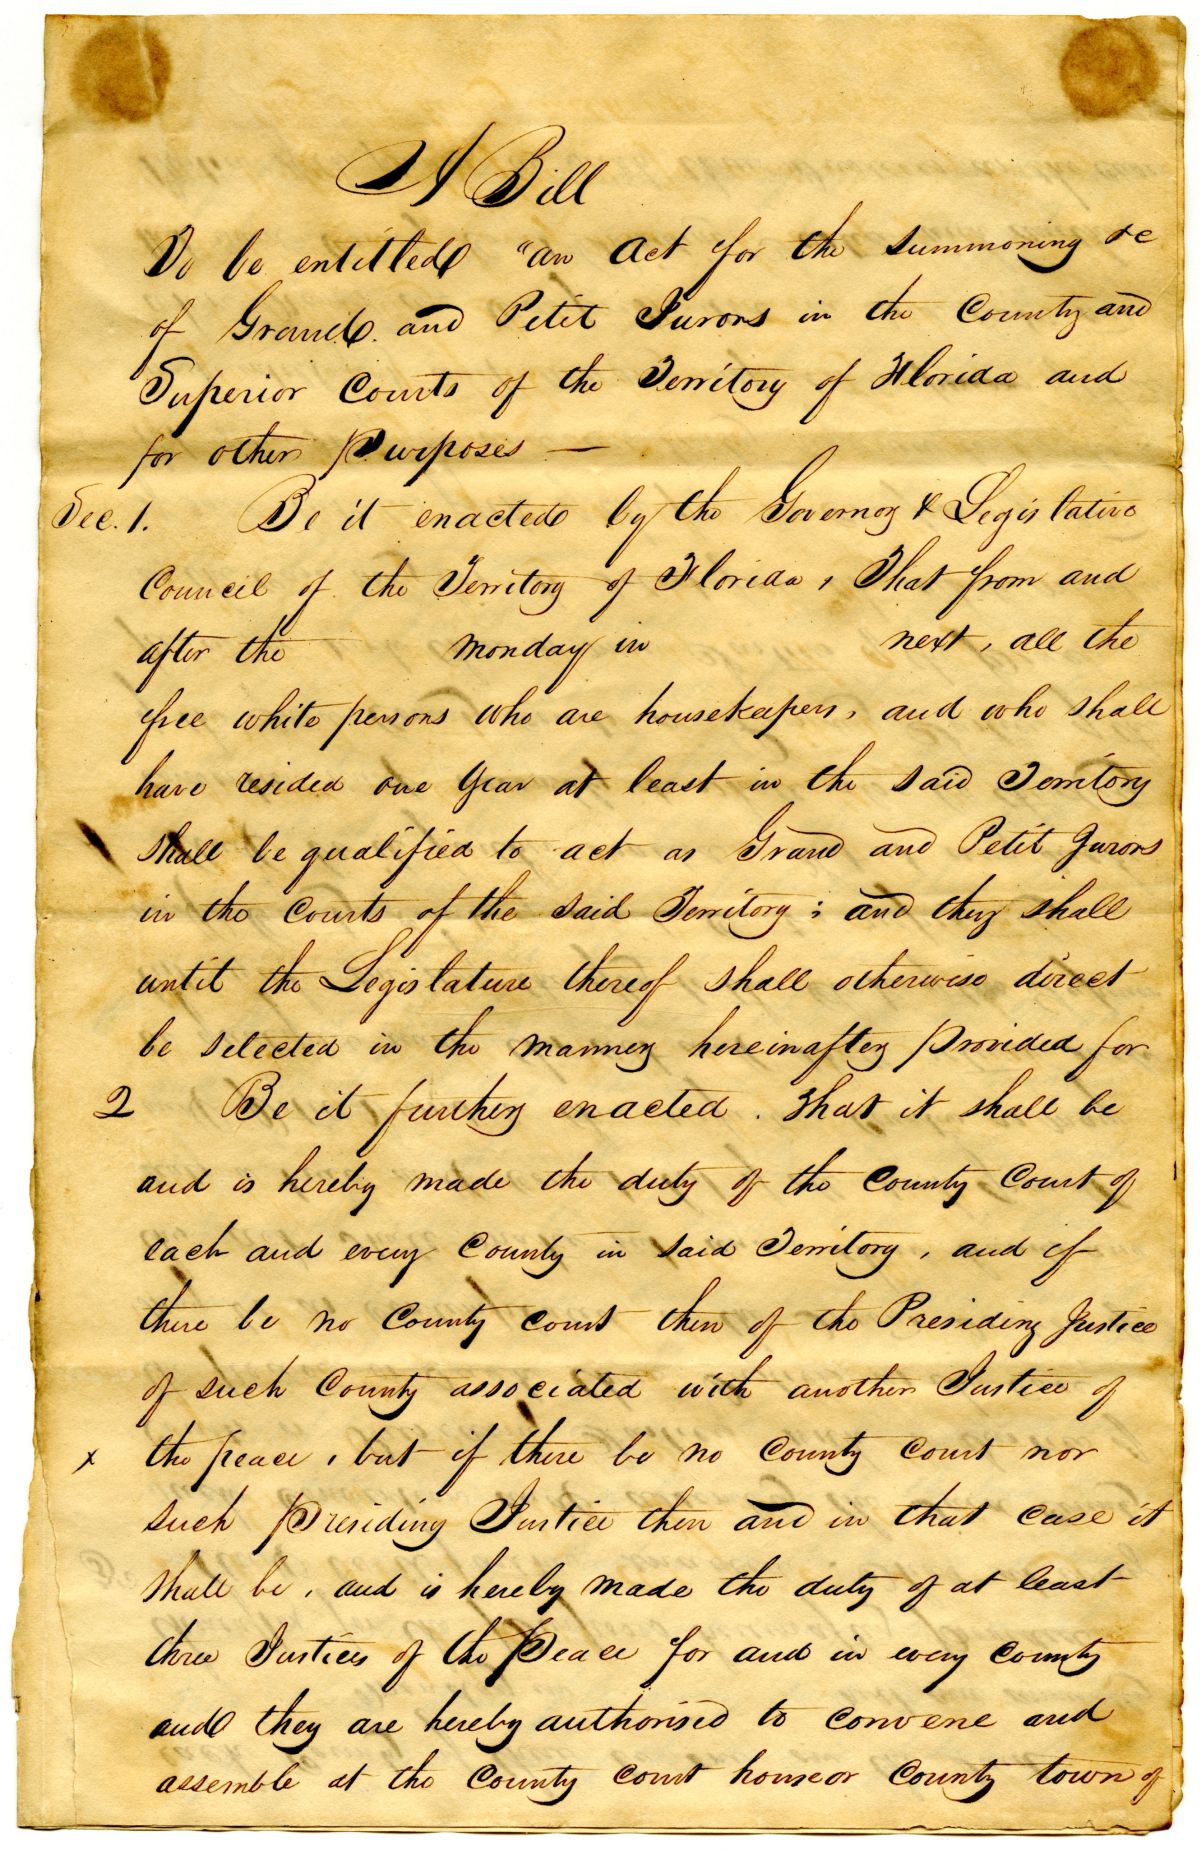 A Bill
To be entitled "an Act for the summoning &c
of Grand and Petit Jurors in the County and
Superior Courts of the Territory of Florida and
for other Purposes —
Sec. 1. Be it enacted by the Governor & Legislative
Council of the Territory of Florida, That from and
after the monday in next, all the
free white persons who are housekeepers, and who shall
have resided one year at least in the said Territory
shall be qualified to act as Grand and Petit Jurors
in the Courts of the said Territory; and they shall
until the Legislature thereof shall otherwise direct
be selected in the manner hereinafter provided for
2 Be it further enacted. That it shall be
and is hereby made the duty of the County Court of
each and every County in said Territory, and if
there be no County Court then of the Presiding Justice
of such County associated with another Justice of
x the peace, but if there be no County Court nor
such Presiding Justice then and in that case it
shall be, and is hereby made the duty of at least
three Justices of the Peace for and in every County
and they are hereby authorised to convene and
assemble at the County Court house or County town of